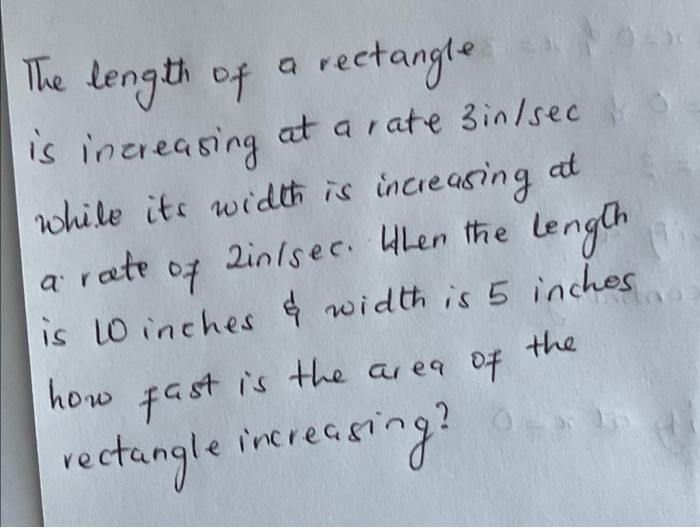 The length of a rectangle
is increasing at a rate 3in/sec
while its width is increasing at
a rate of 2in/sec. When the length
is 10 inches & width is 5 inches
how fast is the area of the
rectangle increasing?